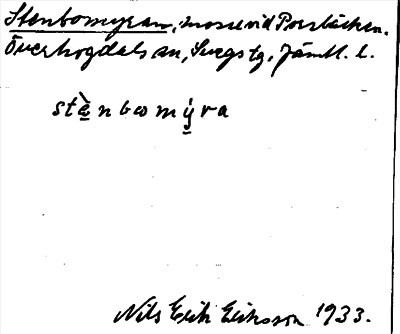 Stenbomyran, mosse vid Porsbäcken.
Överhogdals sn, Svegs tg, Jämtl. l.
stè̠nbωmý̠ra
Nils Erik Eriksson 1933.